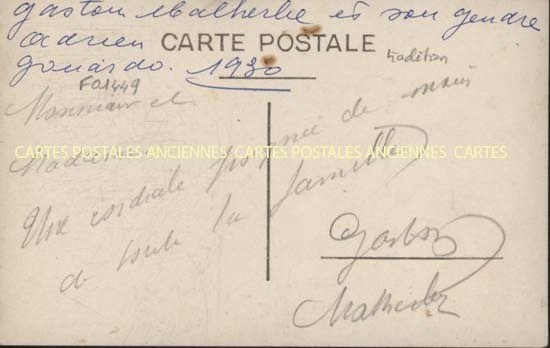 gaston Malherbe et son gendre
adrien
CARTE POSTALE
gouardo. 1930
tradition
F01449
Monsieur et
Madame
CARTES POSTALES ANCIENNES CARTES POSTALES ANCIENNES CARTES
Une cordiale poignée de main
de toute la famille
Gaston
Malherbe